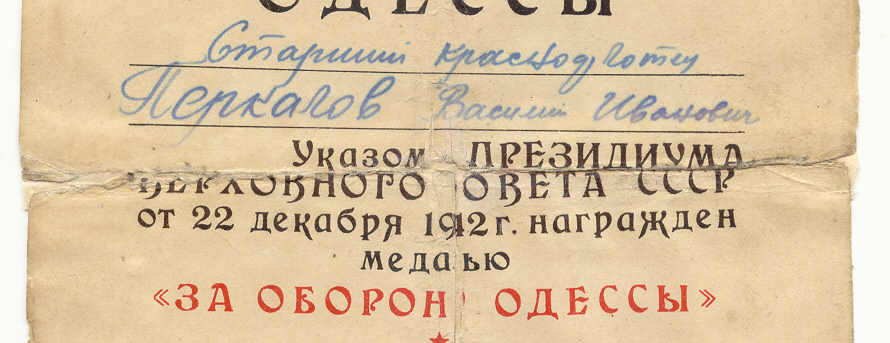 ОДЕССЫ
Старший краснофлотец
Перкалов Василий Иванович
Указом ПРЕЗИДИУМА
ВЕРХОВНОГО СОВЕТА СССР
от 22 декабря 1942 г. награжден
медалью
«ЗА ОБОРОНУ ОДЕССЫ»